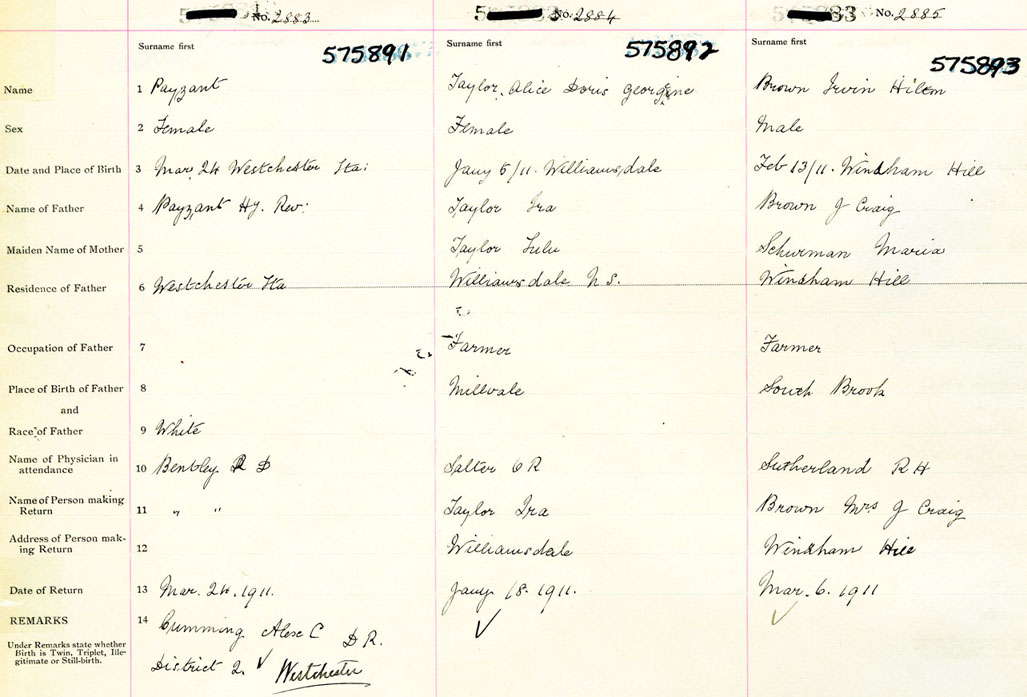 No. 2883 No. 2884 No. 2885
Surname first Surname first Surname first
575891 575892 575893
Name 1 Payzant Taylor, Alice Doris Georgine Brown Irvin Hilem
Sex 2 Female Female Male
Date and Place of Birth 3 Mar, 24 Westchester Sta: Jany 5/11. Williamsdale Feb 13/11. Windham Hill
Name of Father 4 Payzant Hy. Rev: Taylor Ira Brown J Craig
Maiden Name of Mother 5 Taylor Lulu Schurman Maria
Residence of Father 6 Westchester Sta Williamsdale N S. Windham Hill
Occupation of Father 7 Farmer Farmer
Place of Birth of Father 8 Millvale South Brook
and
Race of Father 9 White
Name of Physician in
attendance 10 Bentley R D Salter C R Sutherland R H
Name of Person making
Return 11 " " Taylor Ira Brown Mrs J Craig
Address of Person mak-
ing Return 12 Williamsdale Windham Hill
Date of Return 13 Mar. 24. 1911. Jany 18. 1911. Mar. 6. 1911
REMARKS 14 Cumming Alex C D R.
Under Remarks state whether
Birth is Twin, Triplet, Ille-
gitimate or Still-birth.
District 2. Westchester